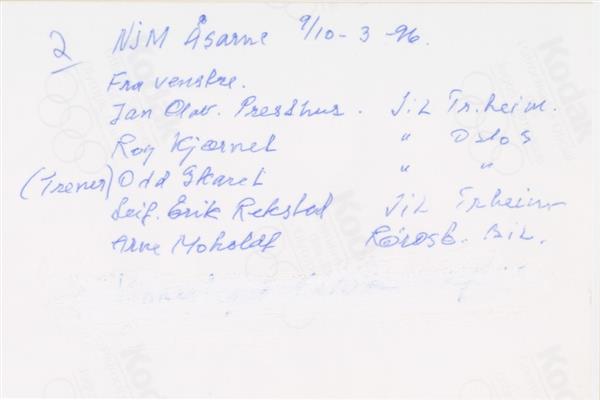 2 NJM Åsarne 9/10-3-96.
Fra venstre.
Jan Olav. Presthus. J.i.L Tr.heim.
Roy Kjærnet " Oslo
(Trener) Odd Skaret " "
Leif. Erik Rekstad J.i.L Trheim
Arne Moholdt Rørosb. BiL.
Kodak